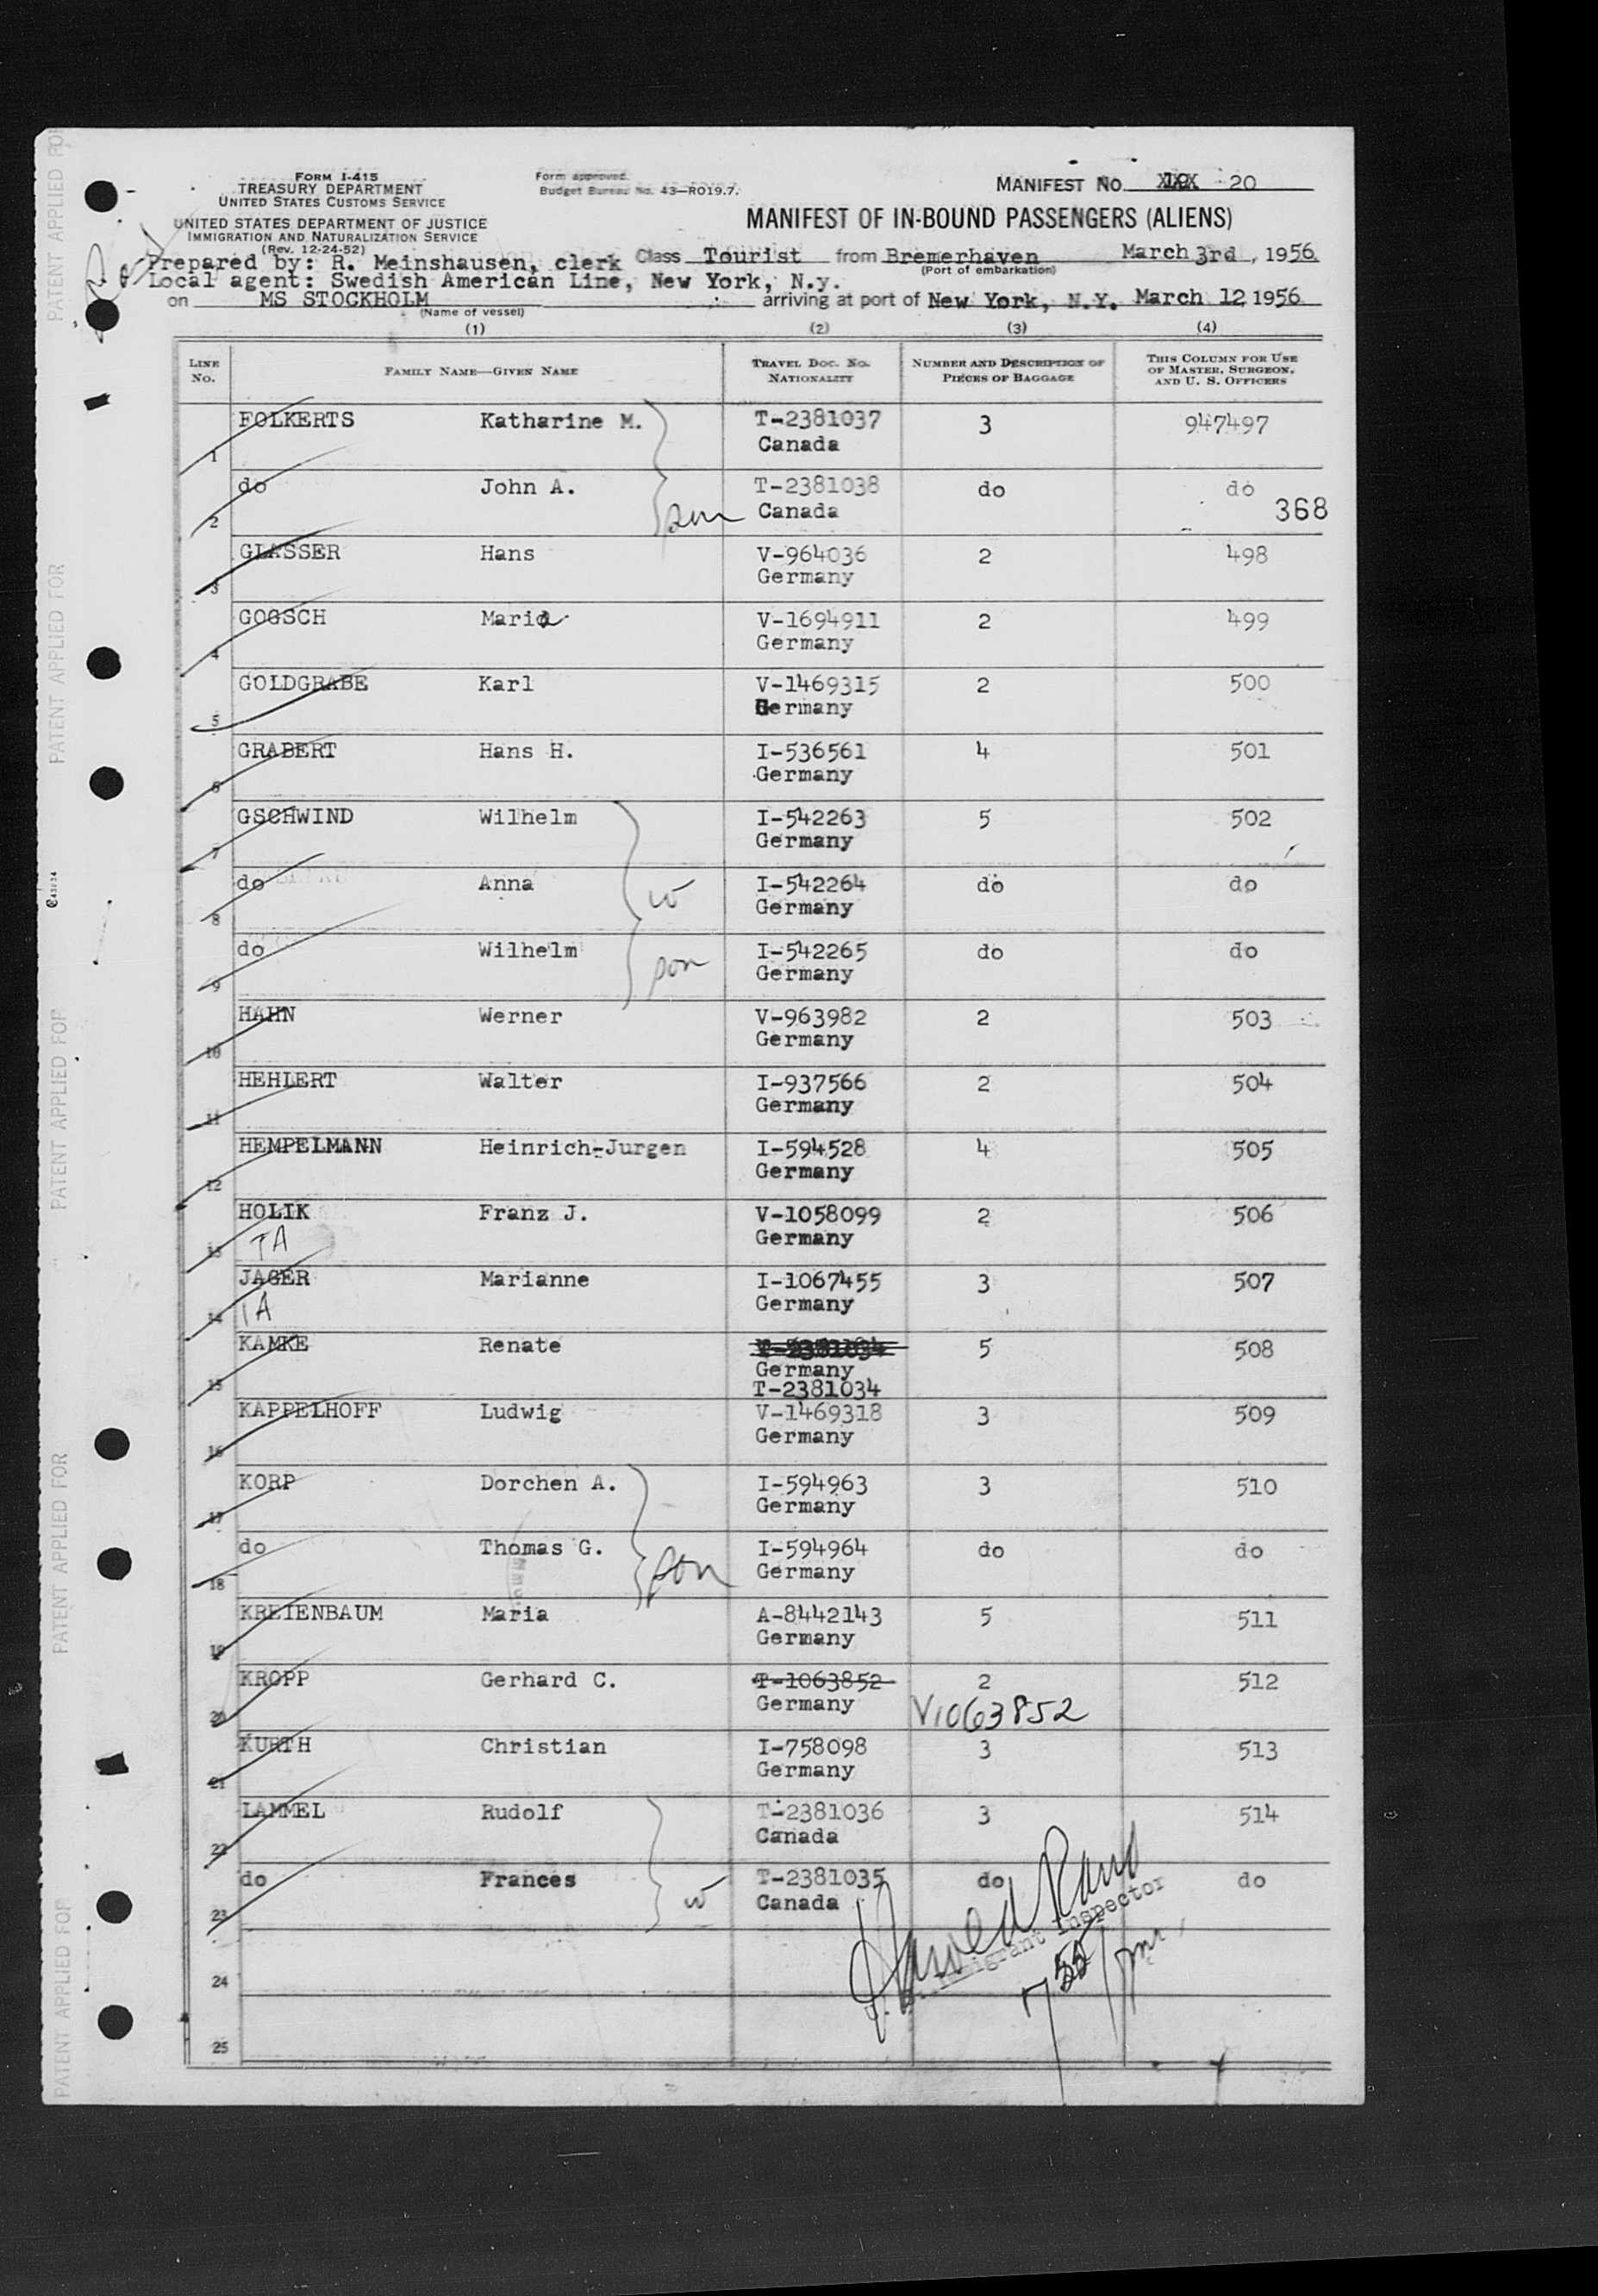 FORM I-415
TREASURY DEPARTMENT
UNITED STATES CUSTOMS SERVICE
UNITED STATES DEPARTMENT OF JUSTICE
IMMIGRATION AND NATURALIZATION SERVICE
(Rev. 12-24-52)
Form approved.
Budget Bureau No. 43—RO19.7.
MANIFEST NO. 20
MANIFEST OF IN-BOUND PASSENGERS (ALIENS)
Prepared by: R. Meinshausen, clerk Class Tourist from Bremerhaven March 3rd, 1956
(Port of embarkation)
Local agent: Swedish American Line, New York, N.y.
on MS STOCKHOLM arriving at port of New York, N.Y. March 12, 1956
(Name of vessel)
(1) (2) (3) (4)
LINE NO. FAMILY NAME—GIVEN NAME TRAVEL DOC. NO. NATIONALITY NUMBER AND DESCRIPTION OF PIECES OF BAGGAGE THIS COLUMN FOR USE OF MASTER, SURGEON, AND U. S. OFFICERS
1 FOLKERTS Katharine M. T-2381037 3 947497
Canada
2 do John A. T-2381038 do do
son Canada 368
3 GLASSER Hans V-964036 2 498
Germany
4 GOGSCH Maria V-1694911 2 499
Germany
5 GOLDGRABE Karl V-1469315 2 500
Germany
6 GRABERT Hans H. I-536561 4 501
Germany
7 GSCHWIND Wilhelm I-542263 5 502
Germany
8 do Anna w I-542264 do do
Germany
9 do Wilhelm son I-542265 do do
Germany
10 HAHN Werner V-963982 2 503
Germany
11 HEHLERT Walter I-937566 2 504
Germany
12 HEMPELMANN Heinrich-Jurgen I-594528 4 505
Germany
13 HOLIK Franz J. V-1058099 2 506
TA Germany
14 JAGER Marianne I-1067455 3 507
IA Germany
15 KAMKE Renate T-2381034 5 508
Germany
T-2381034
16 KAPPELHOFF Ludwig V-1469318 3 509
Germany
17 KORP Dorchen A. I-594963 3 510
Germany
18 do Thomas G. son I-594964 do do
Germany
19 KREIENBAUM Maria A-8442143 5 511
Germany
20 KROPP Gerhard C. T-1063852 2 512
Germany V1063852
21 KURTH Christian I-758098 3 513
Germany
22 LAMMEL Rudolf T-2381036 3 514
Canada
23 do Frances w T-2381035 do do
Canada
Immigrant Inspector
7 55 pm
24
25
PATENT APPLIED FOR
PATENT APPLIED FOR
PATENT APPLIED FOR
PATENT APPLIED FOR
PATENT APPLIED FOR